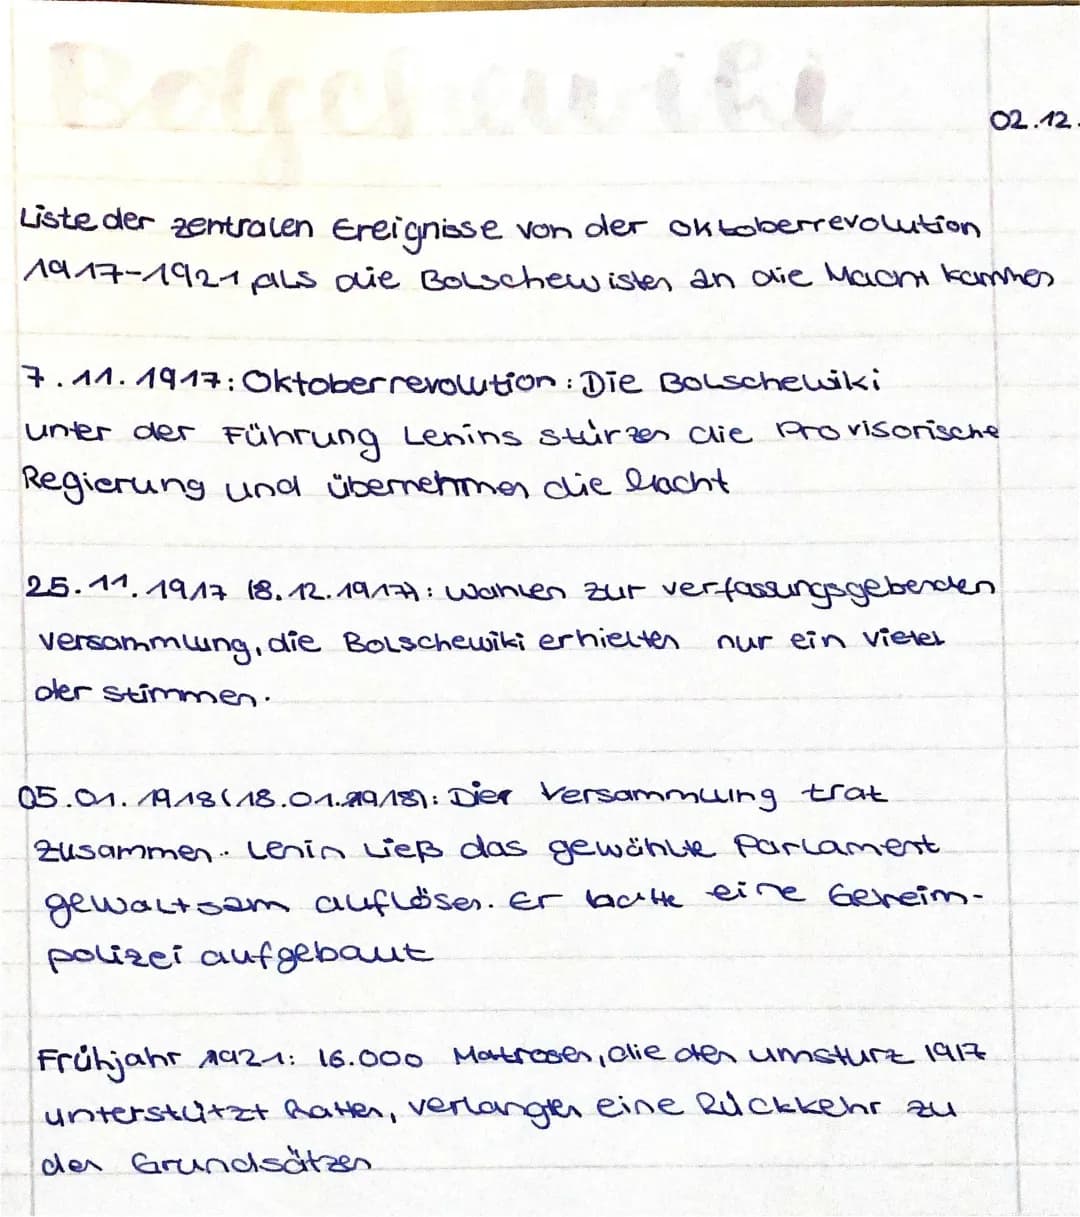 Bolschewiki
02.12.
Liste der zentralen Ereignisse von der Oktoberrevolution
1917-1921 als die Bolschewisten an die Macht kammen
7.11.1917: Oktoberrevolution: Die Bolschewiki
unter der Führung Lenins stürzen die Provisorische
Regierung und übernehmen die Macht
25.11.1917 (8.12.1917): Wahlen zur verfassungsgebenden
versammlung, die Bolschewiki erhielten nur ein viertel
der stimmen.
05.01.1918 (18.01.1918): Die Versammlung trat
zusammen. Lenin ließ das gewählte Parlament
gewaltsam auflösen. Er hatte eine Geheim-
polizei aufgebaut
Frühjahr 1921: 16.000 Matrosen, die den umsturz 1917
unterstützt hatten, verlangten eine Rückkehr zu
den Grundsätzen